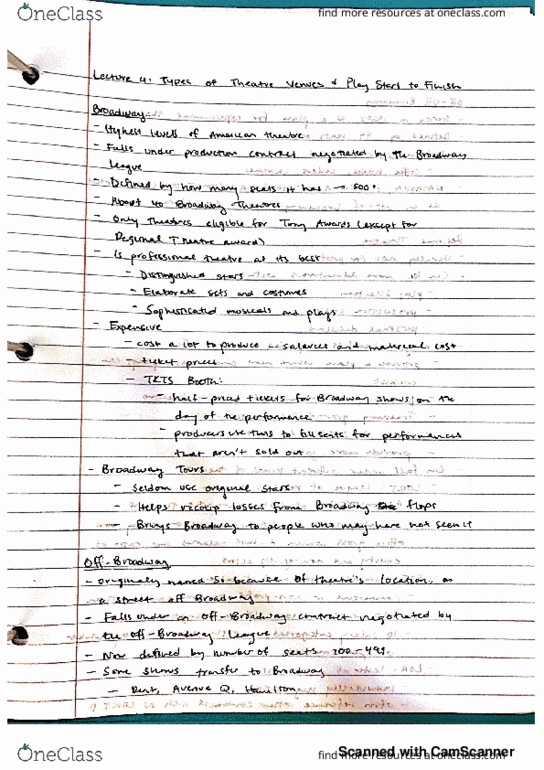 OneClass
find more resources at oneclass.com
Lecture 4: Types of Theatre Venues & Play Start to Finish
Broadway:
- Highest levels of American theatre
- Falls under production contract negotiated by the Broadway
League
- Defined by how many seats it has → 500+
- About 40 Broadway Theatres
- Only theatres eligible for Tony Awards (except for
Regional Theatre award)
- Is professional theatre at its best
- Distinguished stars
- Elaborate sets and costumes
- Sophisticated musicals and plays
- Expensive
- cost a lot to produce salaries and material cost
ticket prices
- TKTS Booth:
- half-priced tickets for Broadway shows on the
day of the performance
- producers use this to fill seats for performances
that aren't sold out
- Broadway Tours
- Seldom use original stars
- Helps recoup losses from Broadway flops
- Brings Broadway to people who may have not seen it
Off-Broadway
- originally named so because of theatre's location, on
a street off Broadway
- Falls under an off-Broadway contract negotiated by
the off-Broadway League
- Now defined by number of seats 100-499
- Some shows transfer to Broadway
- Rent, Avenue Q, Hamilton
OneClass
find more resources at oneclass.com
Scanned with CamScanner